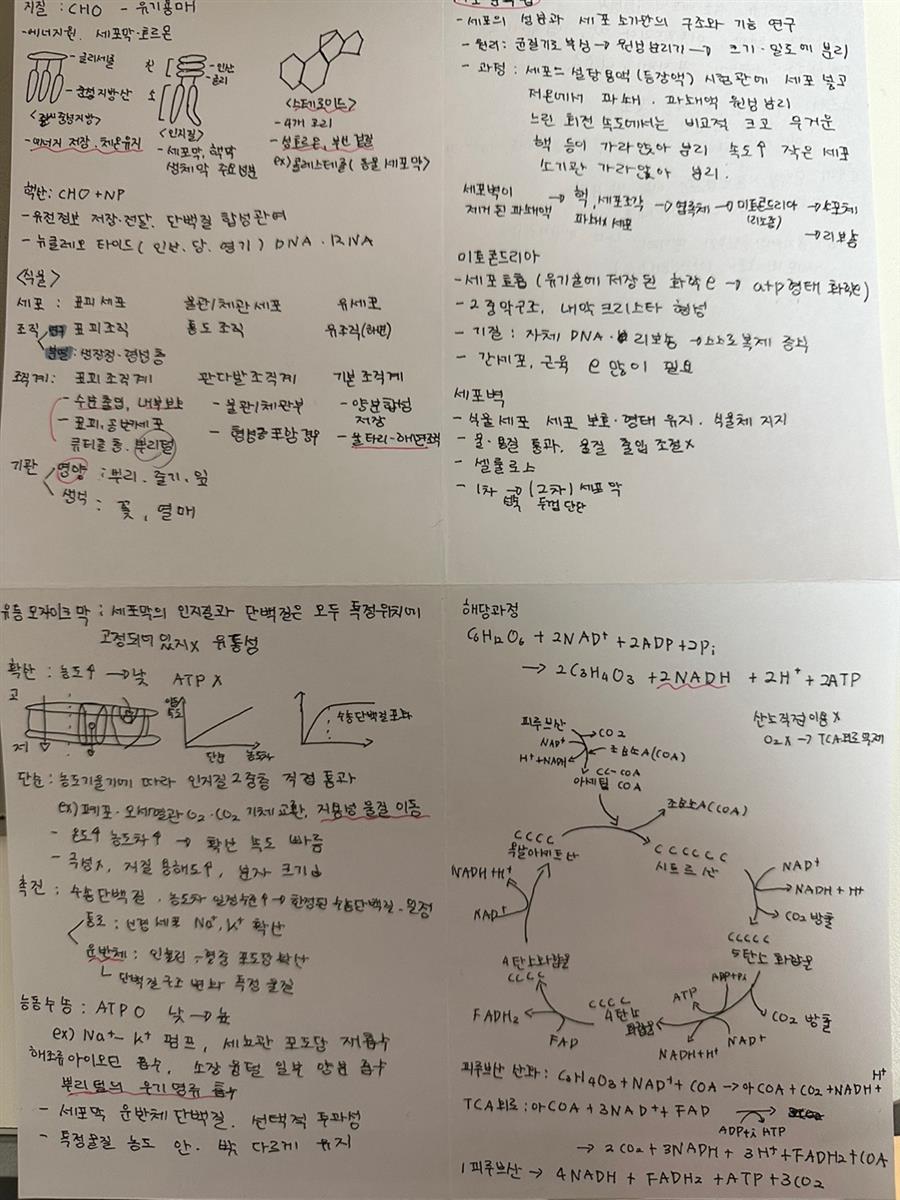 지질 : CHO - 유기용매
- 에너지원. 세포막·호르몬
글리세롤
중성지방산
<중성지방>
- 에너지 저장, 체온유지
친
소
인산
글리
<인지질>
- 세포막, 핵막
생체막 주요성분
<스테로이드>
- 4개 고리
- 성호르몬, 부신 겉질
ex) 콜레스테롤 (동물 세포막)
핵산: CHO + NP
- 유전정보 저장·전달. 단백질 합성관여
- 뉴클레오 타이드 ( 인산. 당. 염기 ) DNA · RNA
<식물>
세포 : 표피 세포 물관/체관 세포 유세포
조직 영구 표피조직 통도 조직 유조직(해면)
분열 : 생장점·형성층
조직계: 표피 조직계 관다발 조직계 기본 조직계
- 수분 출입, 내부보호 - 물관/체관부 - 양분합성 저장
- 표피, 공변세포 - 형성층 포함 - 울타리-해면조직
큐티클 층. 뿌리털
기관 영양 : 뿌리. 줄기. 잎
생식 : 꽃, 열매
- 세포의 성분과 세포 소기관의 구조와 기능 연구
- 원리: 균질기로 부숨 → 원심분리기 → 크기·밀도에 분리
- 과정 : 세포드 설탕용액 (등장액) 시험관에 세포 넣고
저온에서 파쇄. 파쇄액 원심 분리
느린 회전 속도에서는 비교적 크고 무거운
핵 등이 가라앉아 분리 속도↑ 작은 세포
소기관 가라앉아 분리.
세포벽이 제거된 파쇄액 → 핵, 세포조각 파쇄X 세포 → 엽록체 → 미토콘드리아 (리소좀) → 소포체
→ 리보솜
미토콘드리아
- 세포호흡 (유기물에 저장된 화학e → atp형태 화학e)
- 2중막구조, 내막 크리스타 형성
- 기질 : 자체 DNA · 리보솜 → 스스로 복제 증식
- 간세포, 근육 e 많이 필요
세포벽
- 식물 세포 세포 보호·형태 유지. 식물체 지지
- 물·용질 통과, 물질 출입 조절X
- 셀룰로스
- 1차 → (2차) 세포 막
두껍 단단
유동 모자이크 막 : 세포막의 인지질과 단백질은 모두 특정위치에
고정되어 있지X 유동성
확산 : 농도↑ → 낮 ATP X
고
저
이동 속도
단순 농도차
수송단백질 포화
단순 : 농도기울기에 따라 인지질 2중층 직접 통과
ex) 폐포·모세혈관 O₂·CO₂ 기체교환, 지용성 물질 이동
- 온도↑ 농도차↑ → 확산 속도 빠름
- 극성X, 지질 용해도↑, 분자 크기↓
촉진 : 수송단백질. 농도차 일정수준↑ → 한정된 수송단백질 - 일정
통로 : 신경 세포 Na⁺, K⁺ 확산
운반체 : 인슐린 - 혈중 포도당 확산
└ 단백질 구조 변화 특정 물질
능동수송 : ATP O 낮 → 높
ex) Na⁺- K⁺ 펌프, 세뇨관 포도당 재흡수
해조류 아이오딘 흡수, 소장 융털 일부 양분 흡수
뿌리 털의 무기염류 흡수
- 세포막 운반체 단백질. 선택적 투과성
- 특정물질 농도 안. 밖 다르게 유지
해당과정
C₆H₁₂O₆ + 2NAD⁺ + 2ADP + 2Pi
→ 2C₃H₄O₃ + 2NADH + 2H⁺ + 2ATP
산소 직접이용 X
O₂X → TCA회로 억제
피루브산
CO₂
NAD⁺
H⁺ + NADH
조효소A(COA)
CC-COA
아세틸 COA
조효소A(COA)
CCCC
옥살아세트산
CCCCCC
시트르산
NAD⁺
NADH + H⁺
CO₂ 방출
CCCCC
5탄소 화합물
NADH + H⁺
NAD⁺
4탄소화합물
CCCC
ADP+Pi
ATP
CO₂ 방출
CCCC
4탄소 화합물
FADH₂
FAD
NAD⁺
NADH + H⁺
피루브산 산화: C₃H₄O₃ + NAD⁺ + COA → 아COA + CO₂ + NADH + H⁺
TCA회로 : 아COA + 3NAD⁺ + FAD
ADP+i ATP
→ 2CO₂ + 3NADH + 3H⁺ + FADH₂ + COA
1피루브산 → 4NADH + FADH₂ + ATP + 3CO₂